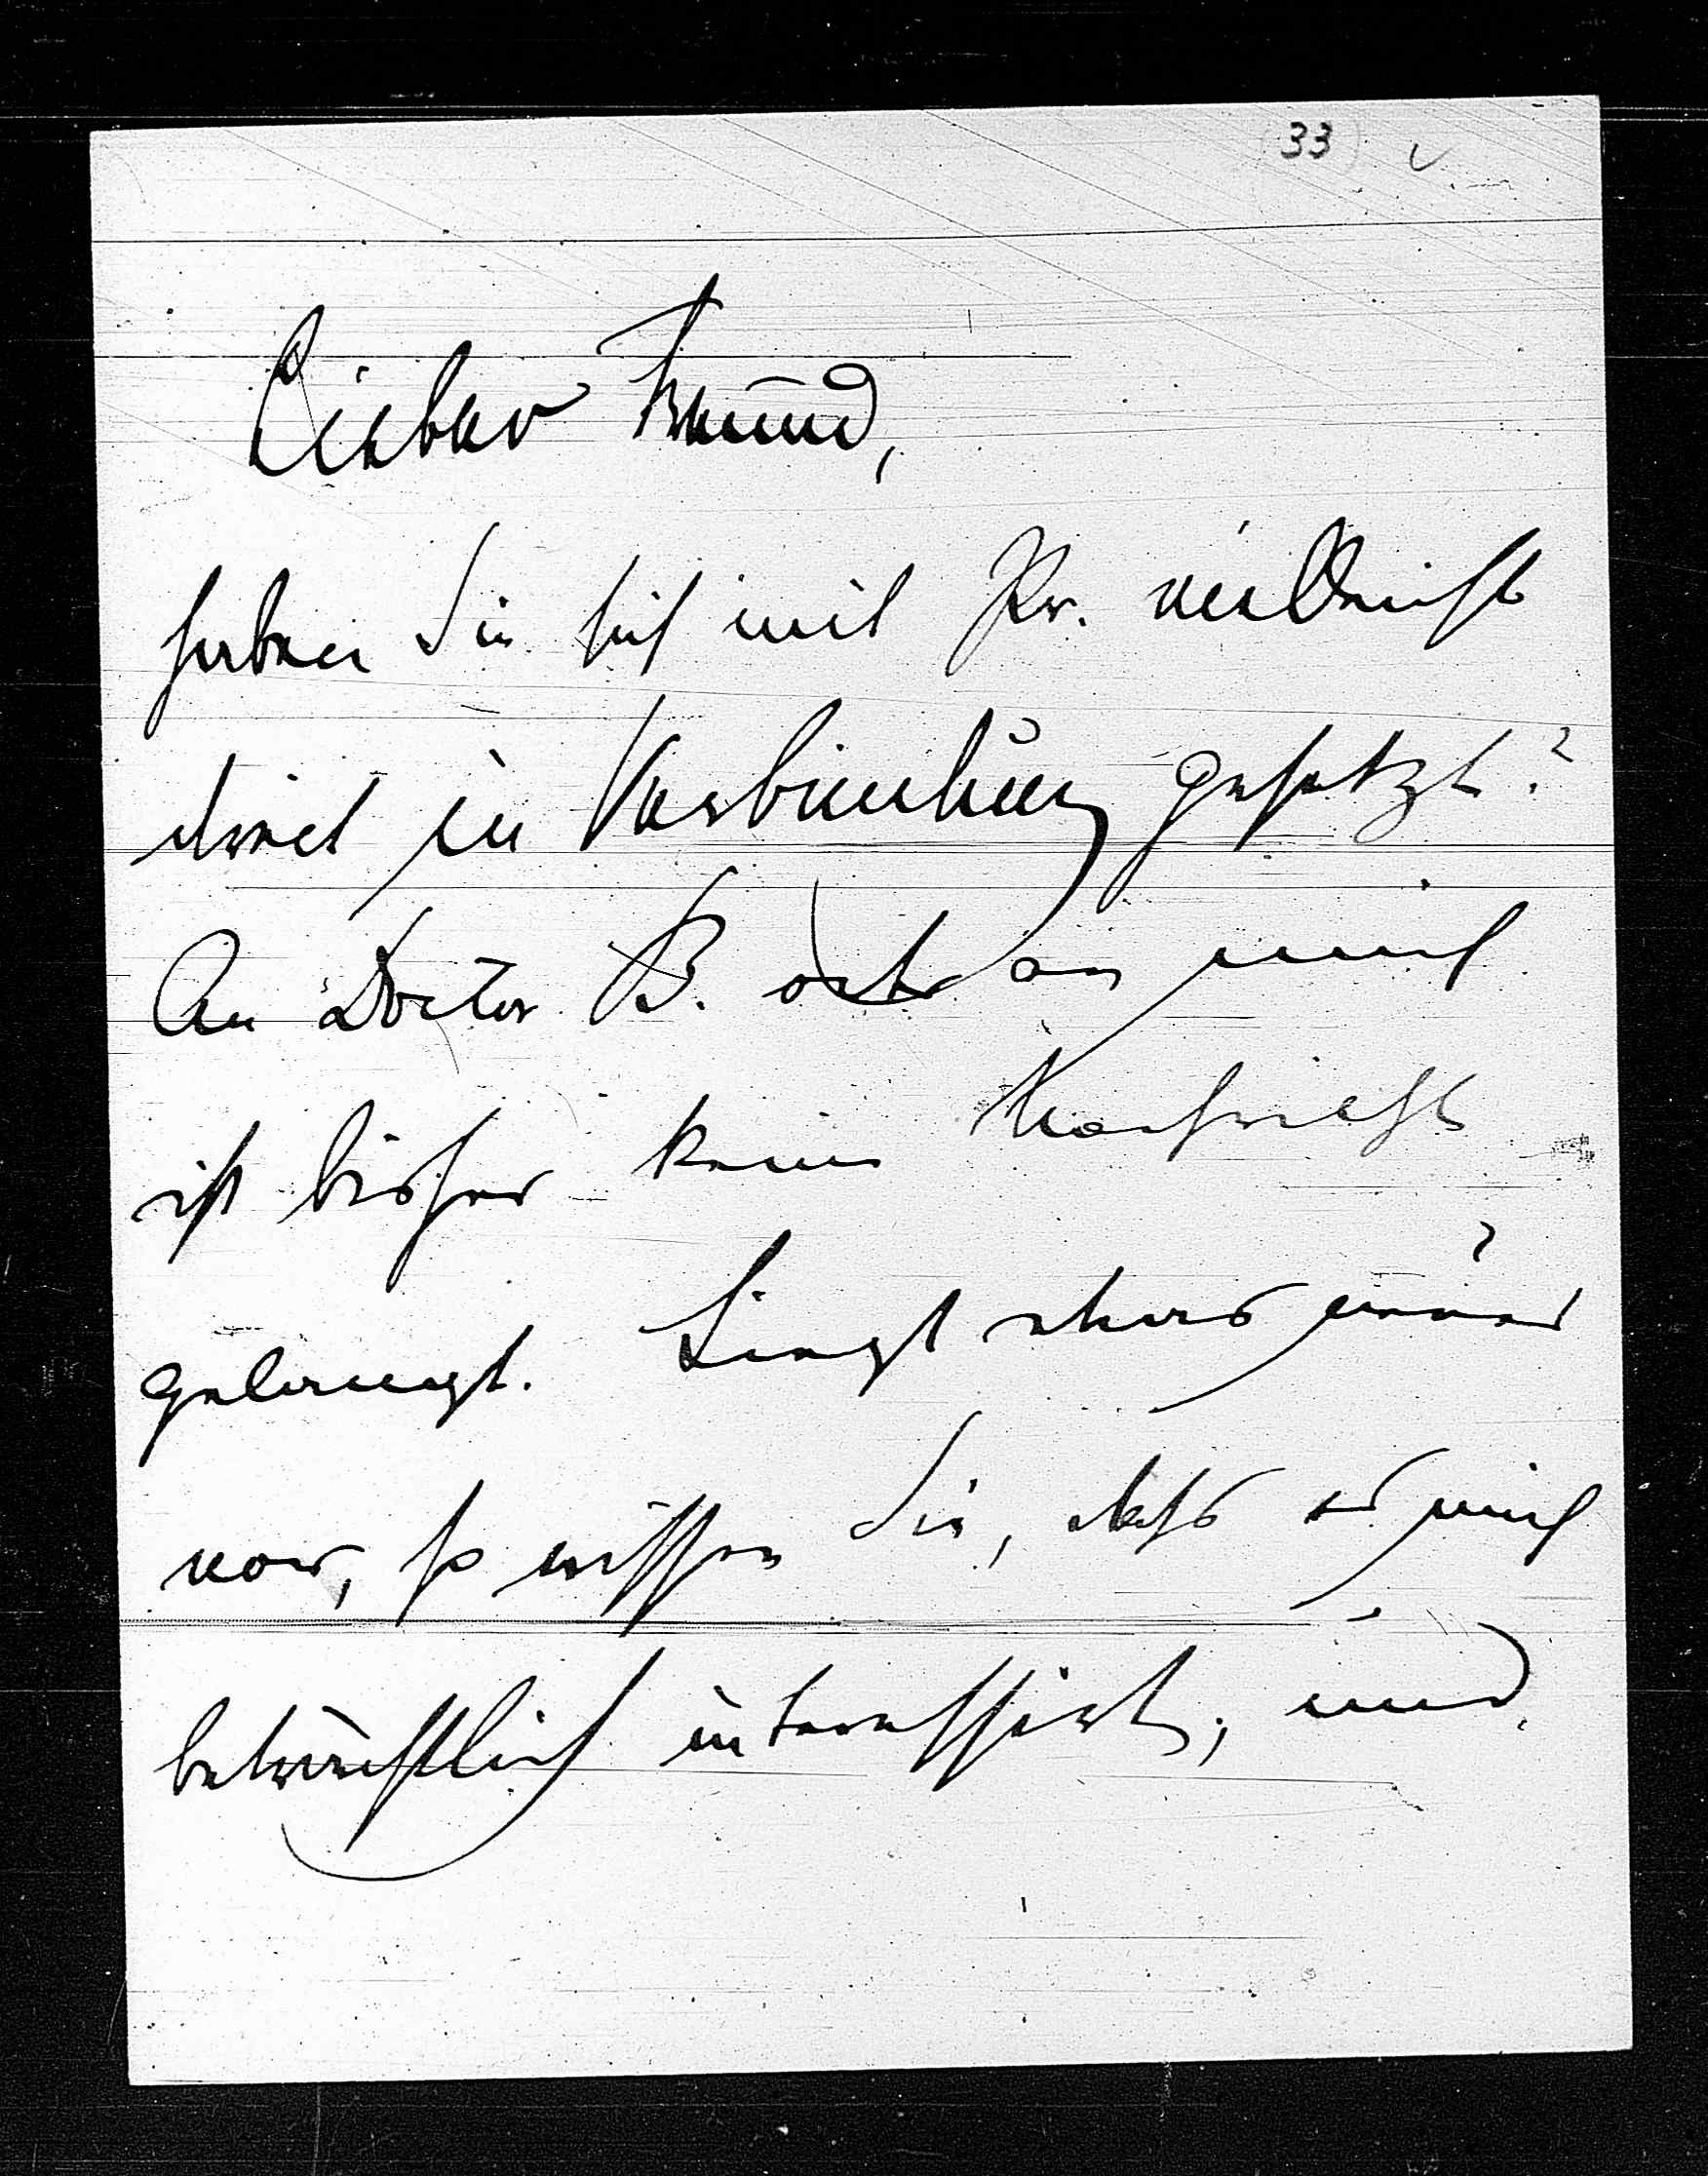 33
Lieber Freund,
haben Sie sich mit Kr. vielleicht
direct in Verbindung gesetzt?
An Doctor B. oder an mich
ist bisher keine Nachricht
gelangt. Liegt etwas neues
vor, so wissen Sie, daß es mich
beträchtlich interessirt, und